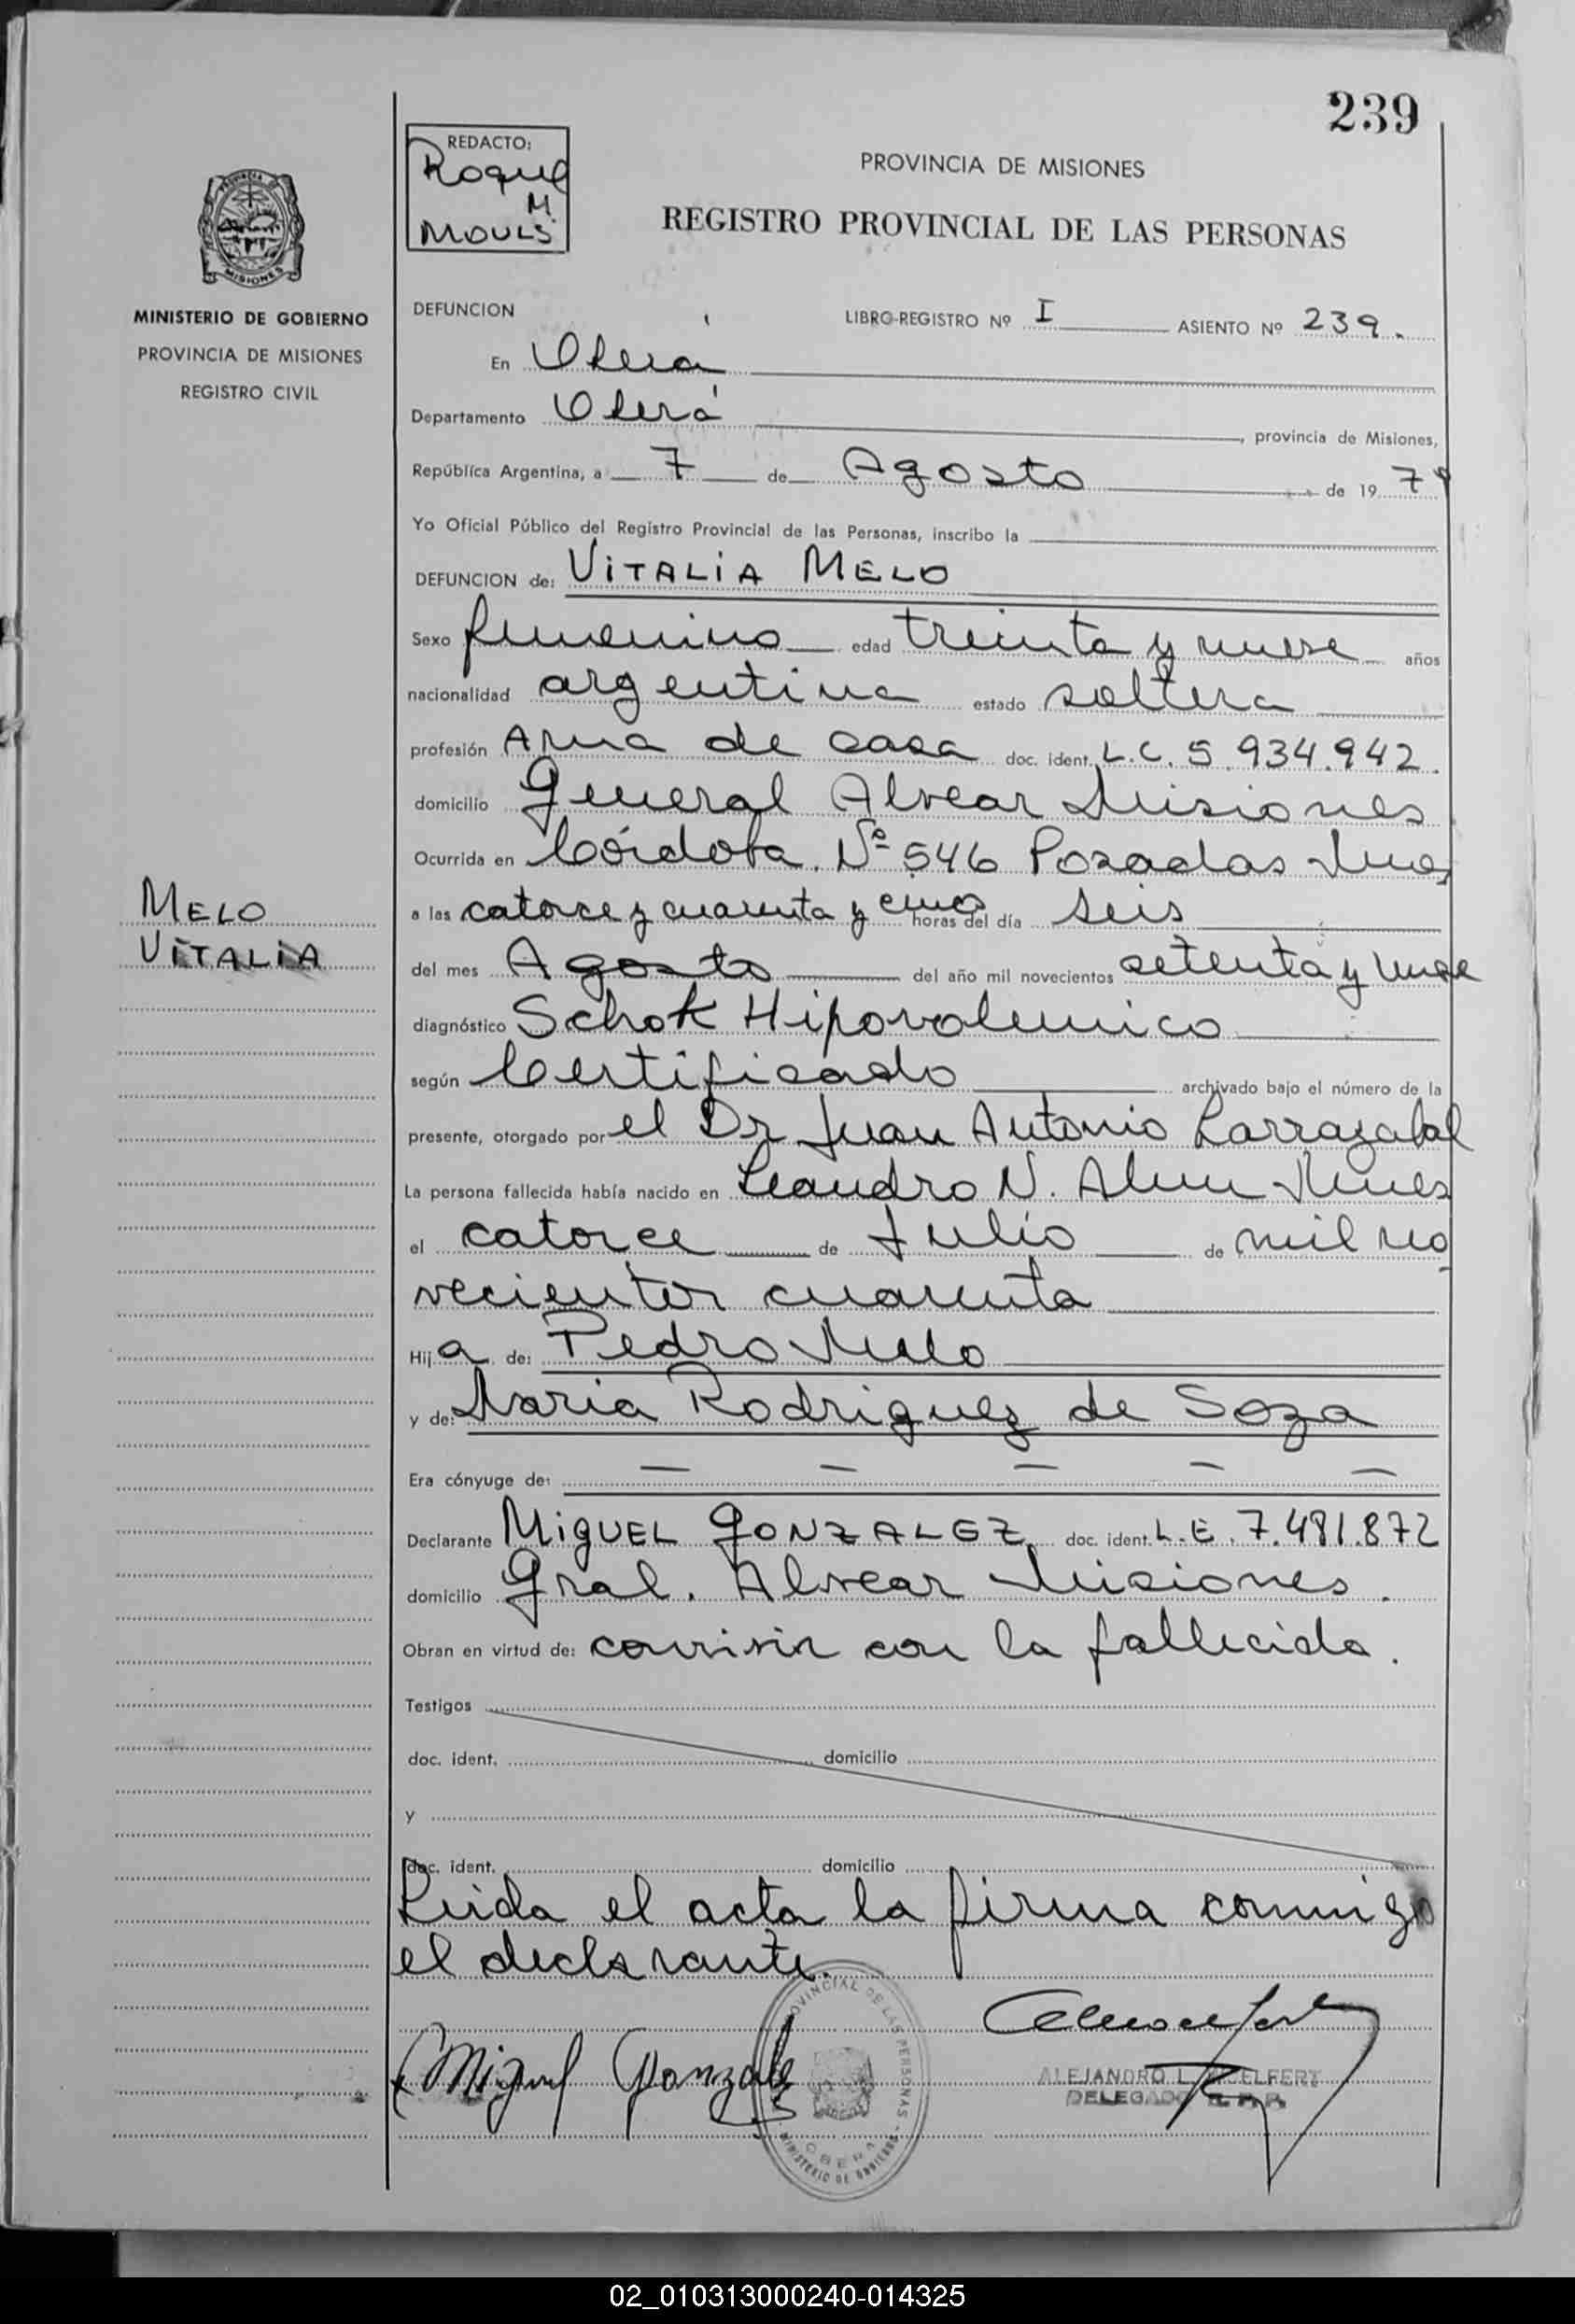 239
REDACTO:
Roque
M.
MOULS
PROVINCIA DE MISIONES
REGISTRO PROVINCIAL DE LAS PERSONAS
PROVINCIA DE
MISIONES
MINISTERIO DE GOBIERNO
PROVINCIA DE MISIONES
REGISTRO CIVIL
DEFUNCION
LIBRO-REGISTRO Nº I ASIENTO Nº 239.
En Oberá
Departamento Oberá, provincia de Misiones,
República Argentina, a 7 de Agosto de 1979
Yo Oficial Público del Registro Provincial de las Personas, inscribo la
DEFUNCION de: VITALIA MELO
Sexo femenino edad treinta y nueve años
nacionalidad argentina estado soltera
profesión Ama de casa doc. ident. L.C. 5.934.942.
domicilio General Alvear Misiones
Ocurrida en Córdoba. Nº 546 Posadas Mnes
MELO
VITALIA
a las catorce y cuarenta y cinco horas del día seis
del mes Agosto del año mil novecientos setenta y nueve
diagnóstico Schok Hipovolemico
según Certificado archivado bajo el número de la
presente, otorgado por el Dr Juan Antonio Larrazabal
La persona fallecida había nacido en Leandro N. Alem Mnes
el catorce de Julio de mil no
vecientos cuarenta
Hija de: Pedro Melo
y de: Maria Rodriguez de Soza
Era cónyuge de: — — — — —
Declarante MIGUEL GONZALEZ doc. ident. L.E. 7.481.872
domicilio Gral. Alvear Misiones.
Obran en virtud de: convivir con la fallecida.
Testigos
doc. ident. domicilio
y
doc. ident. domicilio
Leida el acta la firma conmigo
el declarante.
Miguel Gonzalez
PROVINCIAL DE LAS PERSONAS
OBERA
MINISTERIO DE GOBIERNO
ALEJANDRO L.
DELEGADO R. P. P.
02_010313000240-014325